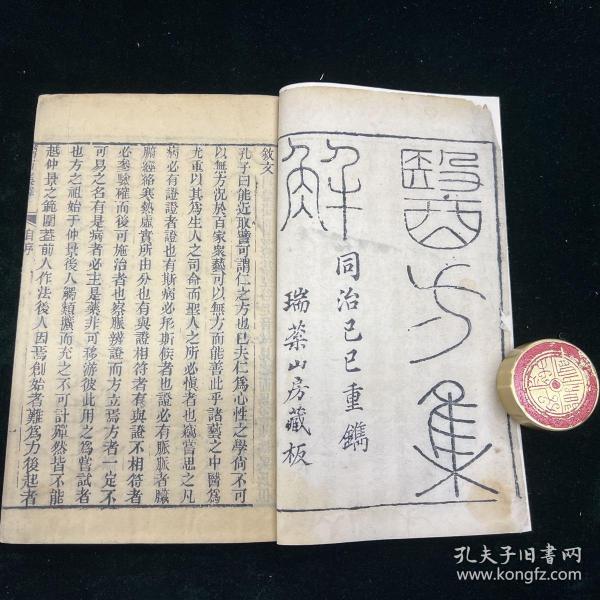 醫方集
解
同治己巳重鐫
瑞蘂山房藏板
敘文
孔子曰能近取譬可謂仁之方也已夫仁爲心性之學尙不可
以無方況於百家衆藝可以無方而能善此乎諸藝之中醫爲
尤重以其爲生人之司命而聖人之所必愼者也竊嘗思之凡
病必有證證者證也有斯病必形斯候者也證必有脈脈者臟
腑經絡寒熱虛實所由分也有與證相符者有與證不相符者
必參驗確而後可施治者也察脈辨證而方立焉方者一定不
可易之名有是病者必主是藥非可移游彼此用之爲嘗試者
也方之祖始于仲景後人觸類擴而充之不可計殫然皆不能
越仲景之範圍蓋前人作法後人因焉創始者難爲力後起者
自序
一
孔夫子旧書网
www.kongfz.com